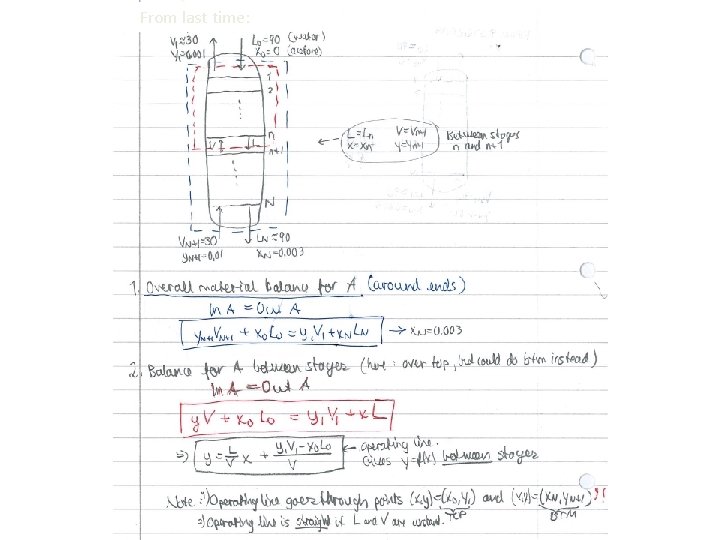 From last time:
V₁≈30 L₀=90 (water)
y₁=0.001 x₀=0 (acetone)
1
2
n
n+1
V L
N
L=Lₙ V=Vₙ₊₁
x=xₙ y=yₙ₊₁
Between stages
n and n+1
V_N+1=30 L_N≈90
y_N+1=0.01 x_N=0.003
1. Overall material balance for A (around ends)
In A = Out A
y_N+1 V_N+1 + x₀L₀ = y₁V₁ + x_N L_N → x_N=0.003
2. Balance for A between stages (here: over top, but could do bottom instead)
In A = Out A
yV + x₀L₀ = y₁V₁ + xL
⇒ y = L/V x + (y₁V₁ - x₀L₀)/V ← operating line.
Gives y=f(x) between stages
Note: ⇒) Operating line goes through points (x,y)=(x₀,y₁) and (x,y)=(x_N, y_N+1) !!
TOP
⇒) Operating line is straight if L and V are constant.